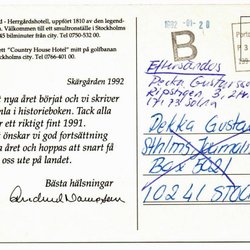 d - Herrgårdshotell, uppfört 1810 av den legend-
. Välkommen till ett smultronställe i Stockholms
45 bilminuter från city. Tel 0750-532 00.
ett "Country House Hotel" mitt på golfbanan
Stockholms city. Tel 0766-401 00.
Skärgården 1992
t nya året börjat och vi skriver
mla i historieboken. Tack alla
r ett riktigt fint 1991.
önskar vi en god fortsättning
a året och hoppas att snart få
oss ute på landet.
Bästa hälsningar
1992 -01- 20
B
Porto
P
Eftersändes
Gustafsson
Ripstigen 3,
171 73 Solna
Dekka Gustafsson
Sthlms
Box 5021
102 41 STOC